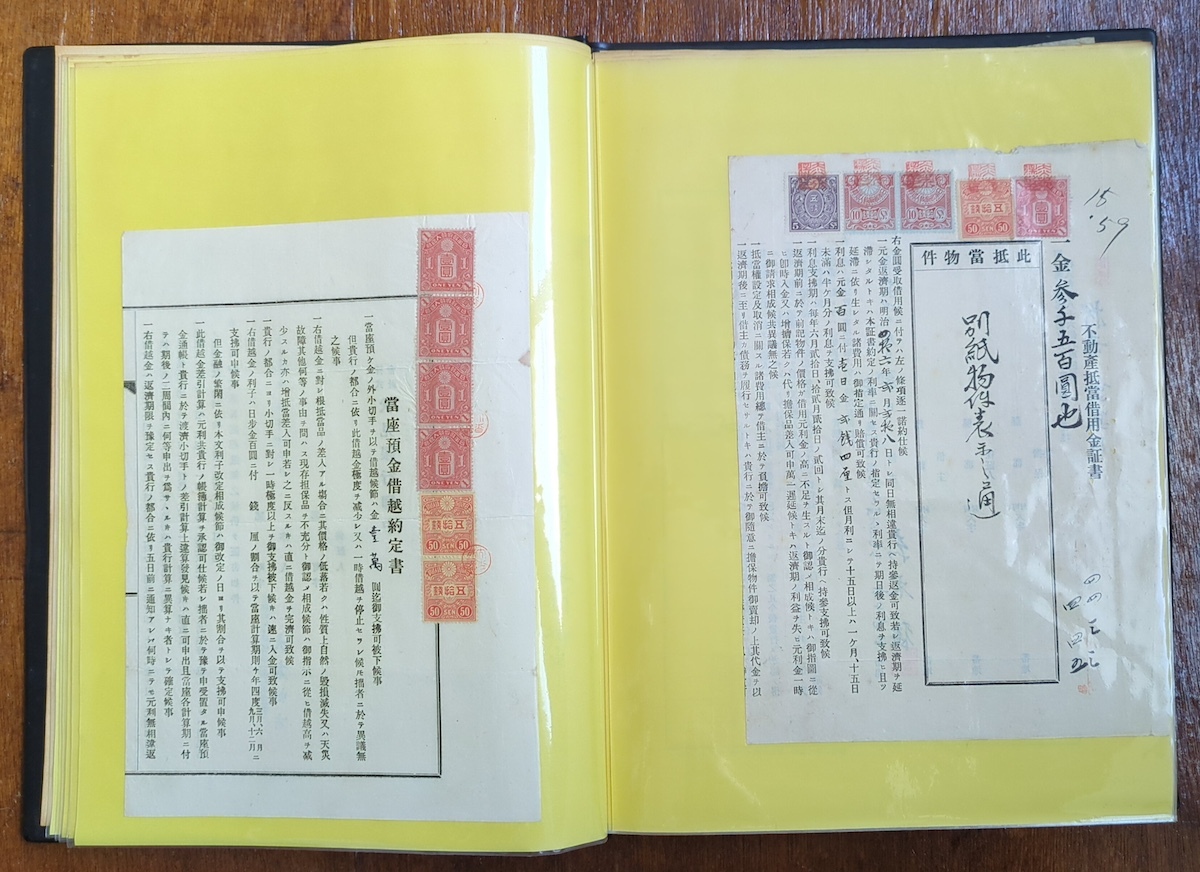 15
59
不動產抵當借用金証書
一金参千五百圓也
此抵當物件
別紙物件表示之通
右金圓受取借用候ニ付テハ左ノ條項逐一諾約仕候
一元金返濟期ハ明治四拾二年 月 八日トシ同日無相違貴行ヘ持參返金可致若シ返濟期ヲ延
滯シタルトキハ本証書約定ノ利率ニ關セス貴行ノ指定セラルヽ利率ニテ期日後ノ利息ヲ支拂ヒ且ツ
延滯ニ依リ生シタル諸費用ハ御指定通リ賠償可致候
一利息ハ元金百圓ニ付壱日金弐錢四厘トス但月利ニシテ十五日以上ハ一ケ月、十五日
未滿ハ半ケ月分ノ利息ヲ支拂可致候
一利息支拂期ハ每年六月貳拾日、拾貳月貳拾日ノ貳回トシ其月末迄ノ分貴行ヘ持參支拂可致候
一返濟期前ニ於テ前記物件ノ價格カ借用元利金ノ高ニ不足ヲ生スルト御認メ相成候トキハ御指圖ニ從
ヒ卽時入金又ハ增擔保若クハ代リ擔保品差入可申萬一遲延候トキハ返濟期ノ利益ヲ失ヒ元利金一時
ニ御請求相成候共異議無之候
一抵當權設定及取消ニ關スル諸費用總テ借主ニ於テ負擔可致候
一返濟期後ニ至リ借主カ債務ヲ履行セサルトキハ貴行ニ於テ御隨意ニ擔保物件御賣却ノ上其代金ヲ以
5
10
10
50 SEN 50
1 1
ONE YEN
1 壹圓 1
ONE YEN
1 壹圓 1
ONE YEN
1 壹圓 1
ONE YEN
1 壹圓 1
ONE YEN
五拾錢
50 SEN 50
五拾錢
50 SEN 50
當座預金借越約定書
一當座預ケ金ノ外小切手ヲ以テ借越候節ハ金壹萬圓迄御支拂可被下候事
但貴行ノ都合ニ依リ此借越金極度ヲ減少シ又ハ一時借越ヲ停止セラレ候トモ拙者ニ於テ異議無
之候事
一右借越金ニ對シ根抵當品ノ差入アル塲合ニ其價格ノ低落若クハ性質上自然ノ毀損滅失又ハ天災
故障其他何等ノ事由ヲ問ハス現存担保品ヲ不充分ト御認メ相成候節ハ御指示ニ從ヒ借越高ヲ減
少スルカ亦ハ增抵當差入可申若シ之ニ反スルキハ直ニ借越金ヲ完濟可致候
一貴行ノ都合ニヨリ小切手ニ對シ一時極度以上ヲ御支拂被下候キハ速ニ入金可致候事
一右借越金ノ利子ハ日步金百圓ニ付 錢 厘ノ割合ヲ以テ當座計算期則チ年四度三月、六月九月、十二月ニ
支拂可申候事
但金融ノ繁閑ニ依リ本文利子改定相成候節ハ御改定ノ日ヨリ其割合ヲ以テ支拂可申候事
一此借越金差引計算ハ元利共貴行ノ帳簿計算ヲ承認可仕候若シ拙者ニ於テ豫テ申受置タル當座預
金通帳ト貴行ニ於テ渡濟小切手トノ差引計算上違算發見候キハ直ニ可申出且當座各計算期ニ付
テハ期後ノ二周間內ニ何等申出ヲ爲サヽルキハ貴行計算ニ異算ナキ者トシテ確定候事
一右借越金ハ返濟期限ヲ豫定セス貴行ノ都合ニ依リ五日前ニ通知アレハ何時ニテモ元利無相違返